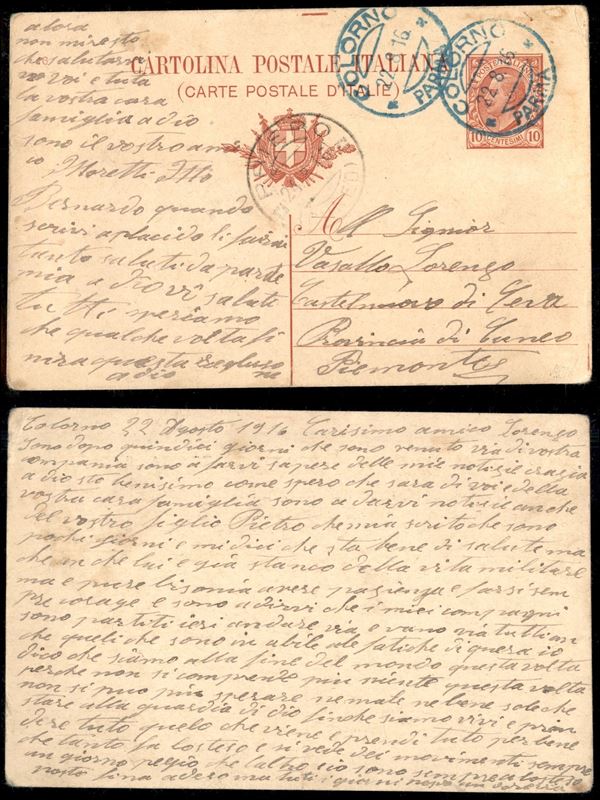 alora
non mi resto
che salutarvi
voi e tuta
la vostra cara
famiglia adio
sono il vostro am
ico
Moretti Itto
Bernardo quando
scrivi a placido li farai
tanto saluti da parde
mia e Dio vi salute
tuti speriamo
che qualche volta fi
nira questa
adio
CARTOLINA POSTALE ITALIANA
(CARTE POSTALE D'ITALIE)
COLORNO
22.8.16
PARMA
COLORNO
22.8.16
PARMA
POSTE ITALIANE
10 CENTESIMI 10
All Signior
Vasallo Lorengo
Castelnuovo di Ceva
Provincia di Cuneo
Piemonte
Colorno 22 Agosto 1916 Carisimo amico Lorengo
Sono dopo quindici giorni che sono venuto via di vostra
compania sono a farvi sapere delle mie notisie grazia
a dio sto benisimo come spero che sara di voi e della
vostra cara famiglia sono a darvi notisie anche
del vostro figlio Pietro che mia scrito che sono
pochi giorni e mi dici che sta bene di salute ma
che an che lui e gia stanco della vita militare
ma e pure bisonia avere pagienga e farsi sem
pre corage e sono a dirvi che i miei compagni
sono partiti ieri andare via e vano via tutti an
che queli che sono in abile ale fatiche di guera io
dico che siamo alla fine del mondo questa volta
perche non si comprendo piu niente questa volta
non si puo piu sperare ne male ne bene solo che
stare alla guardia di dio finche siamo vivi e pren
dere tuto quelo che viene e prendi tuto per bene
che tanto fa lo steso e si vede dei movimenti sempre
an giorno pegio che l'altro io sono sempre a lo steso
posto fina adeso ma tuti i giorni